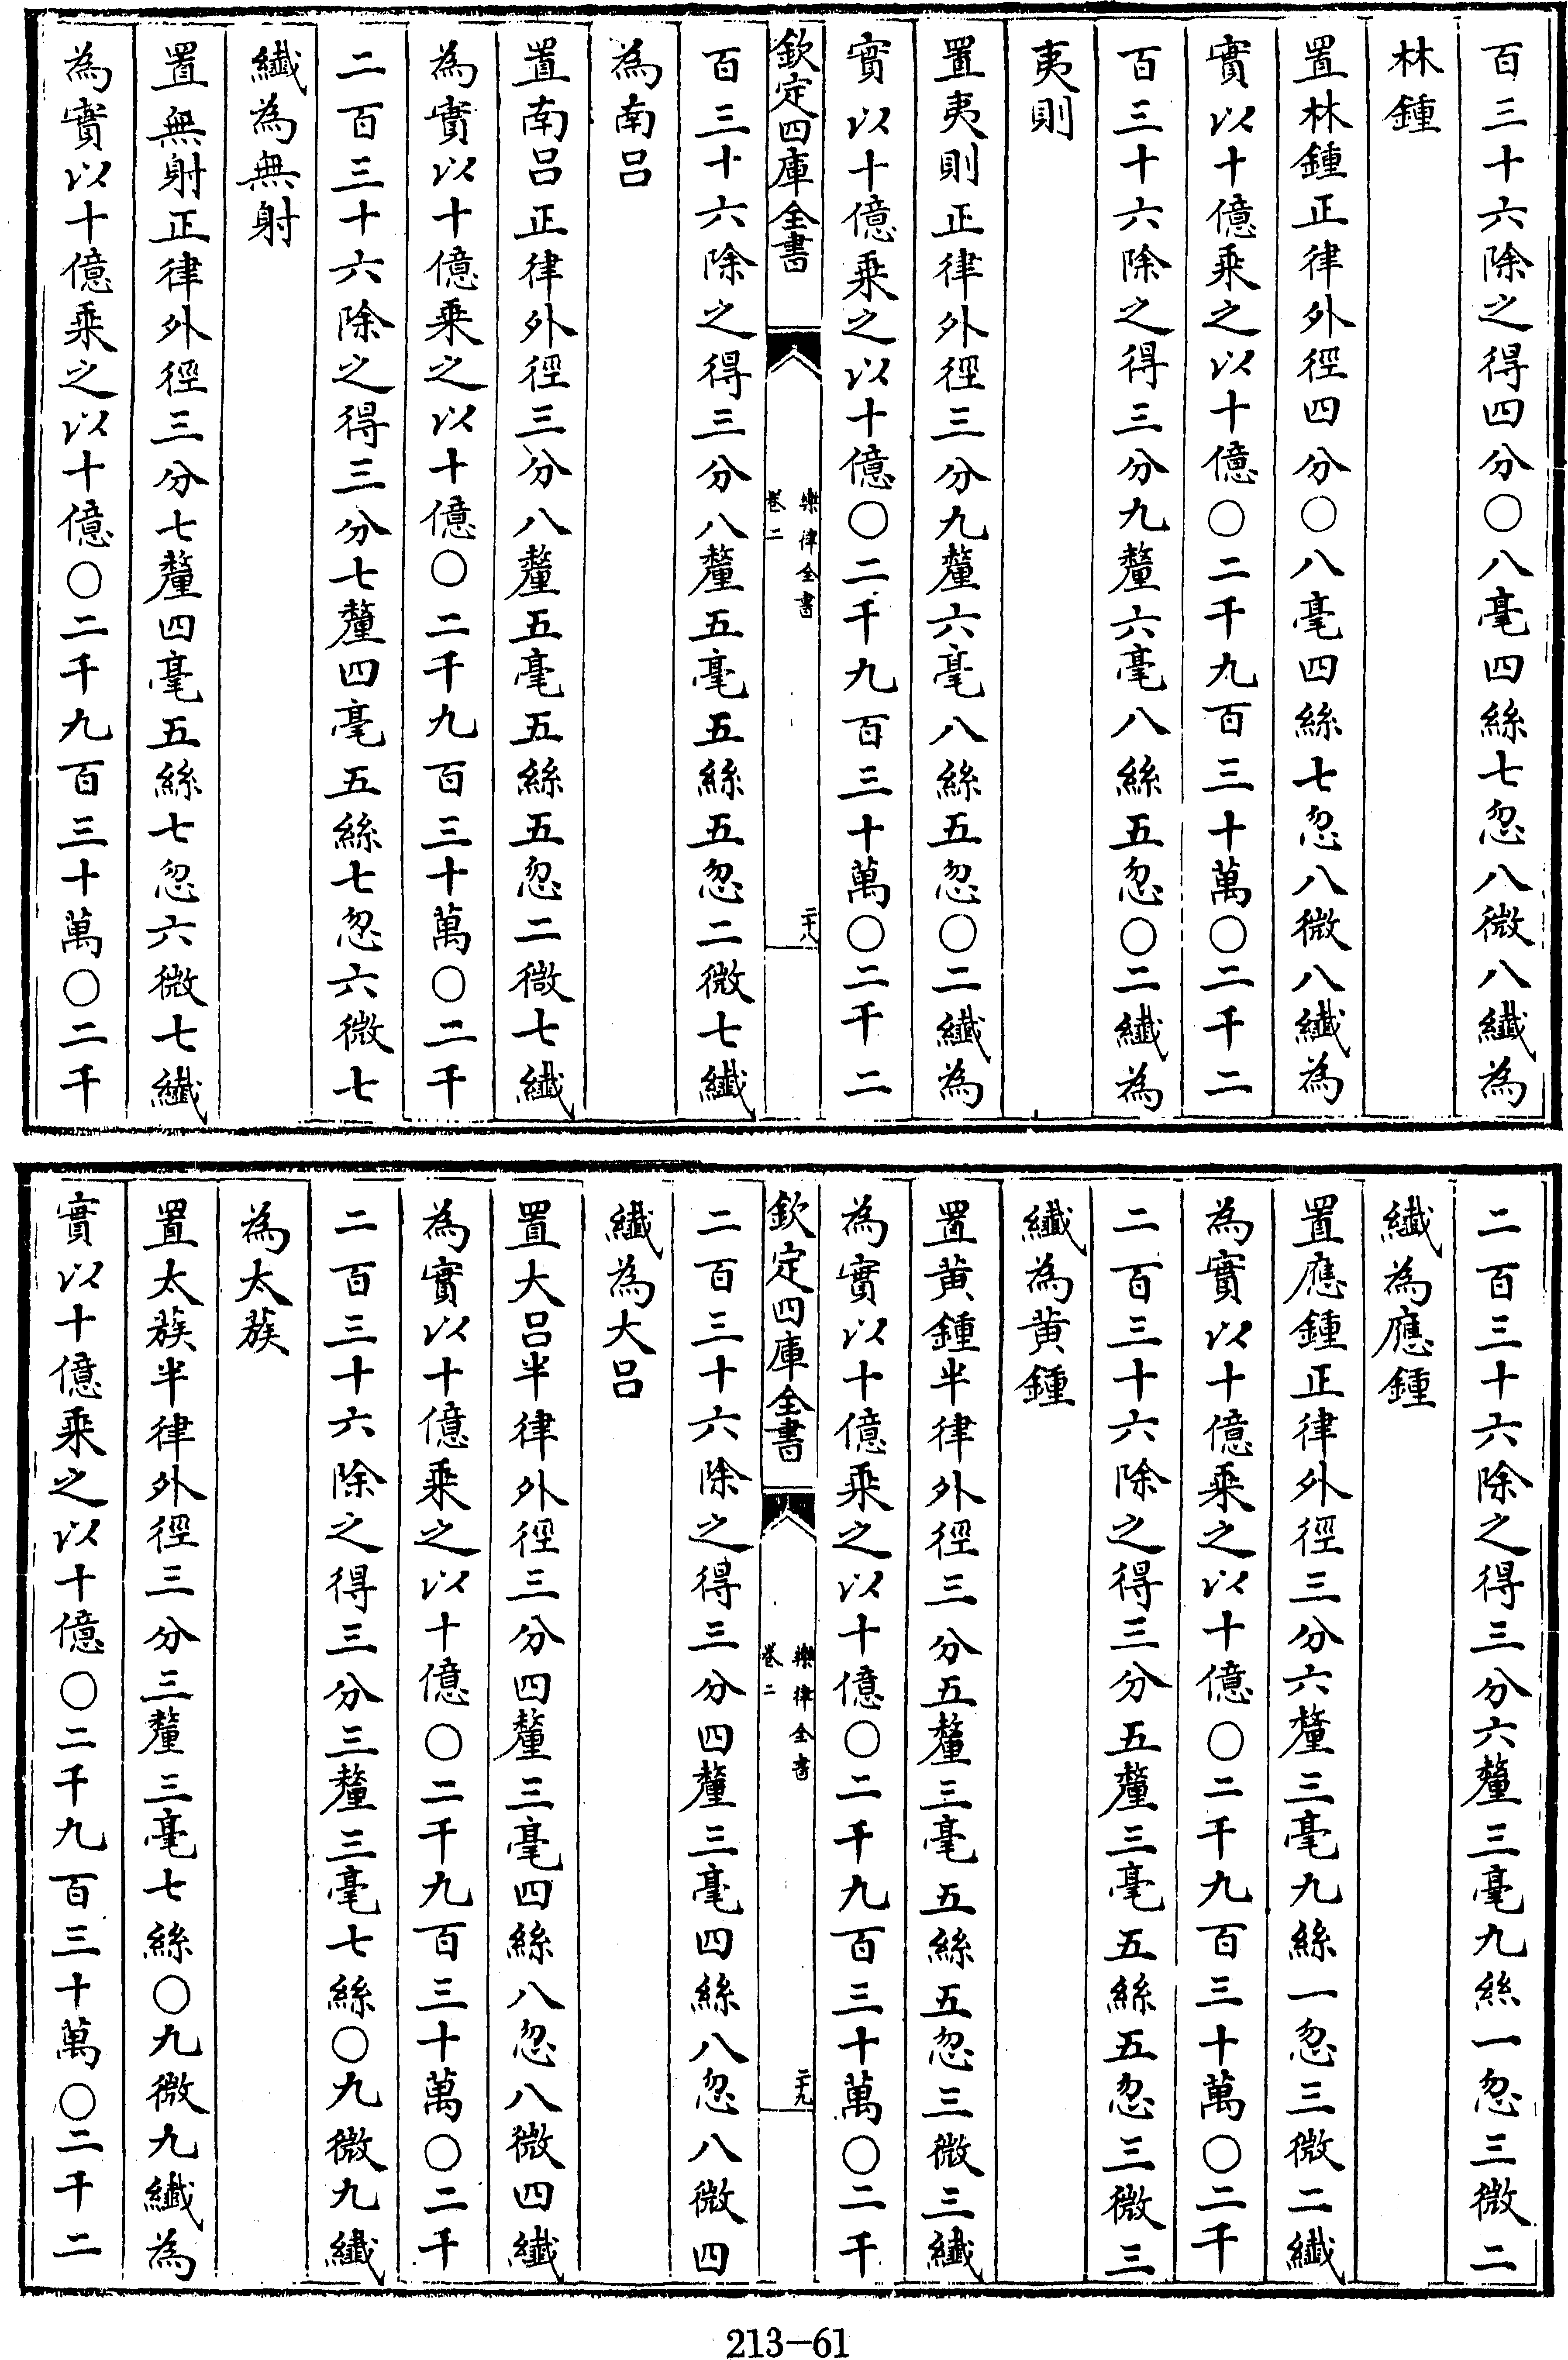 百三十六除之得四分〇八毫四絲七忽八微八纖為
林鍾
置林鍾正律外徑四分〇八毫四絲七忽八微八纖為
實以十億乘之以十億〇二千九百三十萬〇二千二
百三十六除之得三分九釐六毫八絲五忽〇二纖為
夷則
置夷則正律外徑三分九釐六毫八絲五忽〇二纖為
實以十億乘之以十億〇二千九百三十萬〇二千二
欽定四庫全書
樂律全書
卷二
二十八
百三十六除之得三分八釐五毫五絲五忽二微七纖
為南呂
置南呂正律外徑三分八釐五毫五絲五忽二微七纖
為實以十億乘之以十億〇二千九百三十萬〇二千
二百三十六除之得三分七釐四毫五絲七忽六微七
纖為無射
置無射正律外徑三分七釐四毫五絲七忽六微七纖
為實以十億乘之以十億〇二千九百三十萬〇二千
二百三十六除之得三分六釐三毫九絲一忽三微二
纖為應鍾
置應鍾正律外徑三分六釐三毫九絲一忽三微二纖
為實以十億乘之以十億〇二千九百三十萬〇二千
二百三十六除之得三分五釐三毫五絲五忽三微三
纖為黃鍾
置黃鍾半律外徑三分五釐三毫五絲五忽三微三纖
為實以十億乘之以十億〇二千九百三十萬〇二千
欽定四庫全書
樂律全書
卷二
二十九
二百三十六除之得三分四釐三毫四絲八忽八微四
纖為大呂
置大呂半律外徑三分四釐三毫四絲八忽八微四纖
為實以十億乘之以十億〇二千九百三十萬〇二千
二百三十六除之得三分三釐三毫七絲〇九微九纖
為太蔟
置太蔟半律外徑三分三釐三毫七絲〇九微九纖為
實以十億乘之以十億〇二千九百三十萬〇二千二
213-61